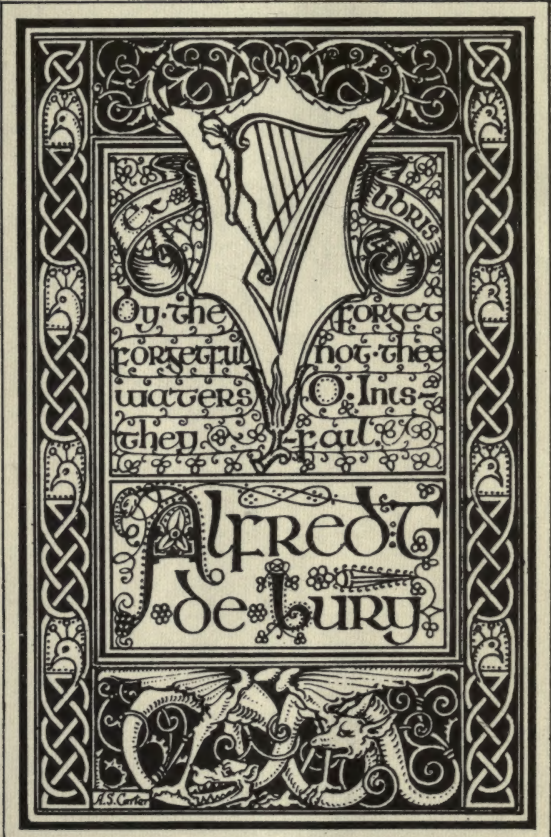 EX LIBRIS
By·the
forgetful
waters
they
forget
not·thee
O·Inis-
-fail.
Alfred:T
de·Lury
A.S. Carter